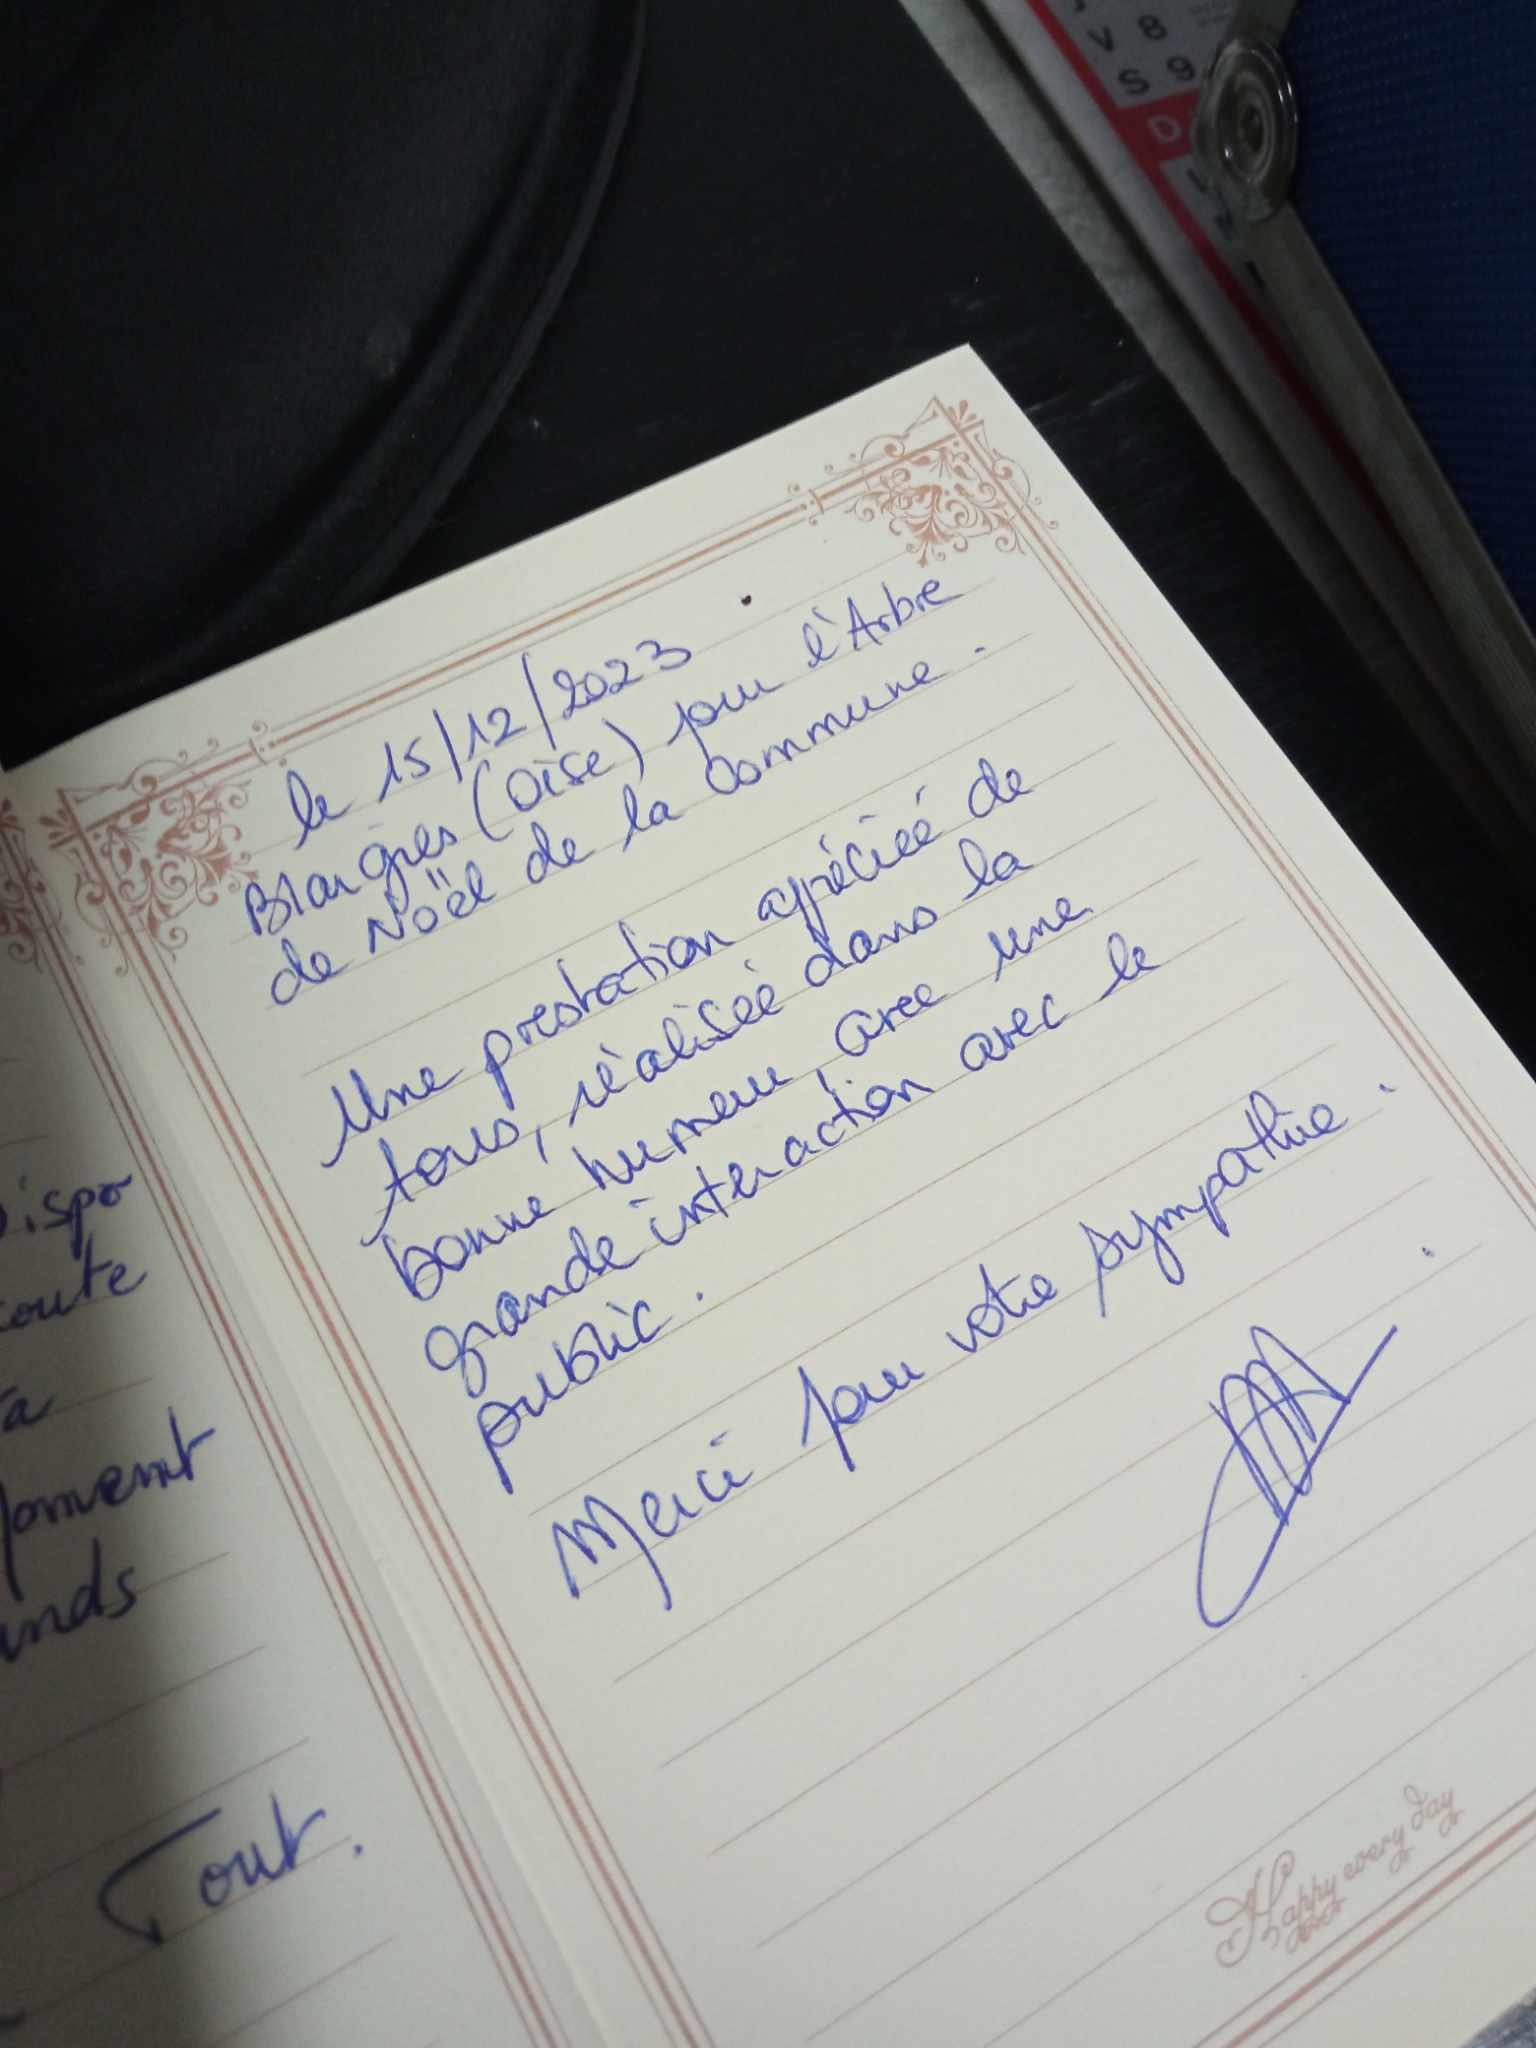 V 8
S 9
D
Dispo
oute
à
ands
Tout.
le 15/12/2023
Blargies (Oise) pour l'Arbre
de Noël de la commune.
Une prestation appréciée de
tous, réalisée dans la
bonne humeur, avec une
grande interaction avec le
public.
Merci pour votre sympathie.
Happy every day